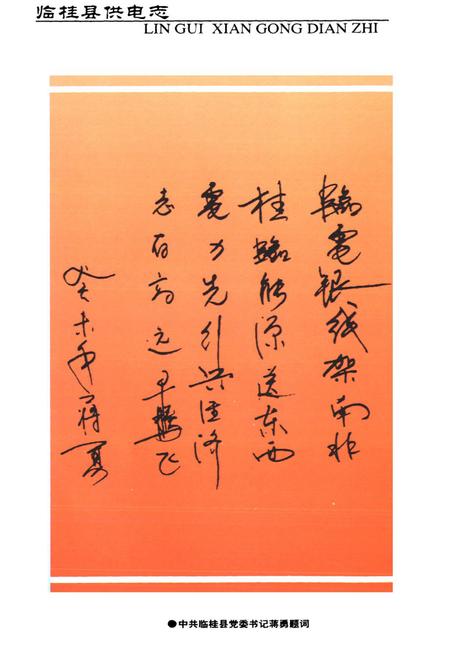 临桂县供电志
LIN GUI XIAN GONG DIAN ZHI
臨電银线架南北
桂臨能源送东西
電力先行兴经济
志存高远早騰飞
癸未年蒋勇
●中共临桂县党委书记蒋勇题词